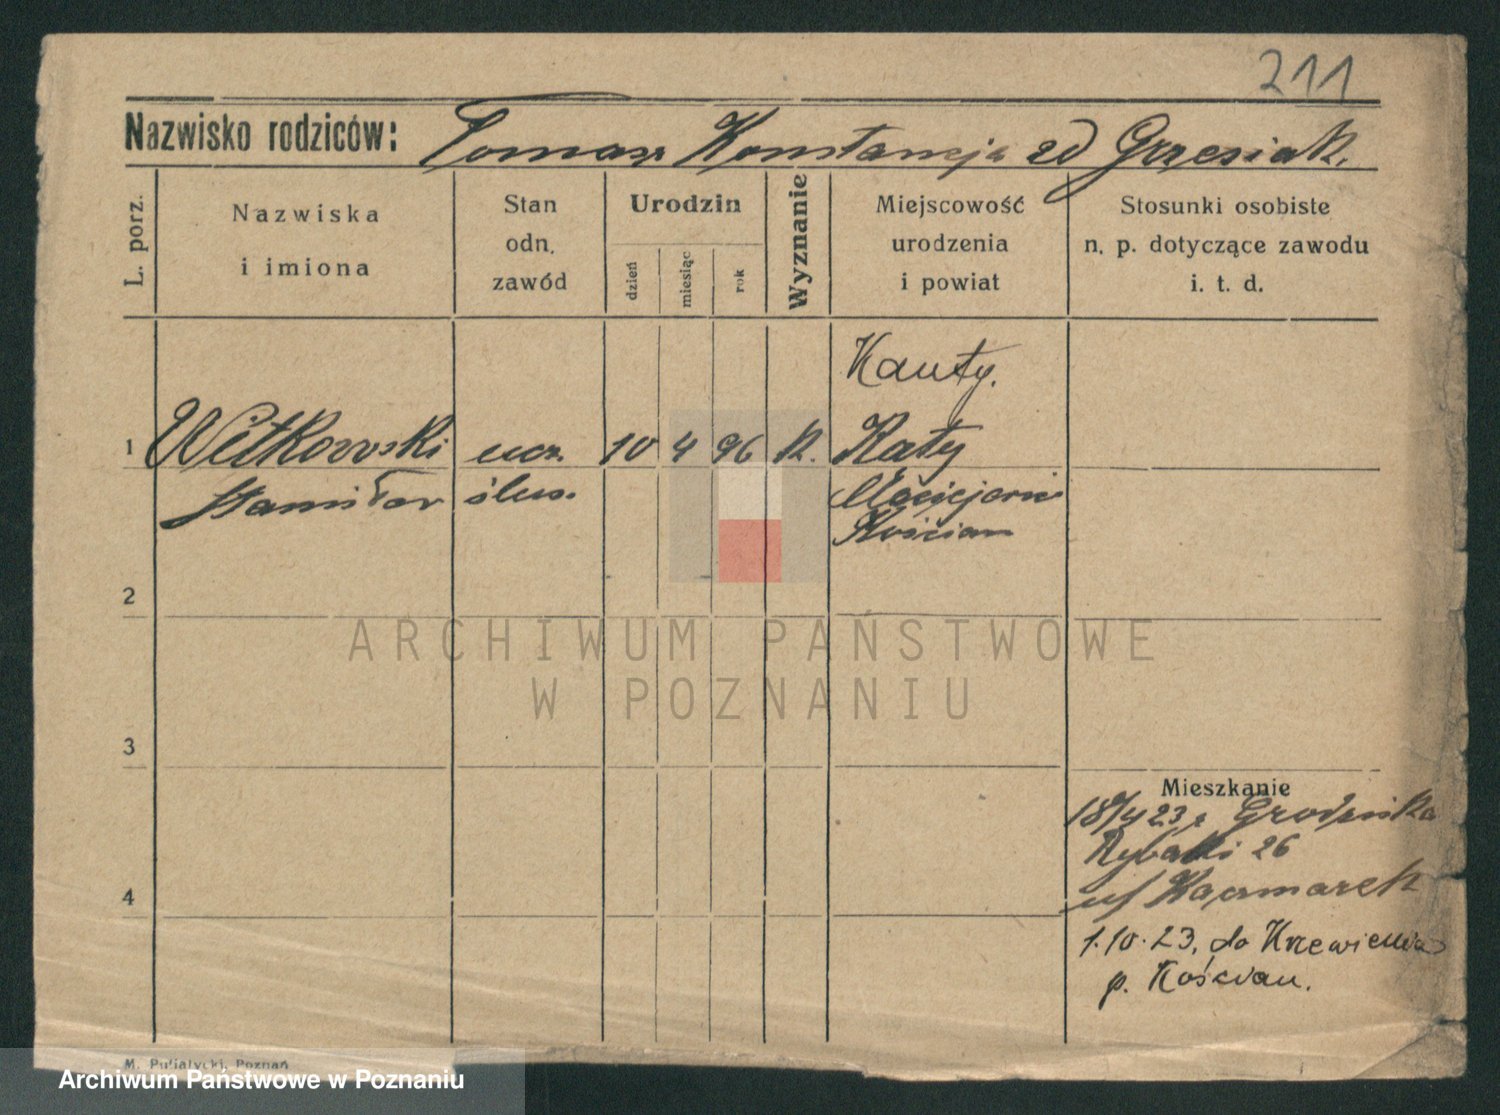 211
Nazwisko rodziców: Tomasz Konstancja zd Grzesiak.
L. porz.
Nazwiska
i imiona
Stan
odn.
zawód
Urodzin
dzień
miesiąc
rok
Wyznanie
Miejscowość
urodzenia
i powiat
Stosunki osobiste
n. p. dotyczące zawodu
i. t. d.
Kąuty.
1 Witkowski ucz. 10 4 96 k. Katy
Stanisław ślus.
Kościan
2
3
4
ARCHIWUM PAŃSTWOWE
W POZNANIU
Mieszkanie
18/4 23 z Grodziska
Rybaki 26
u/ Kaczmarek
1.10.23. do Krzewienia
p. Kościan.
M. Pujatycki, Poznań
Archiwum Państwowe w Poznaniu